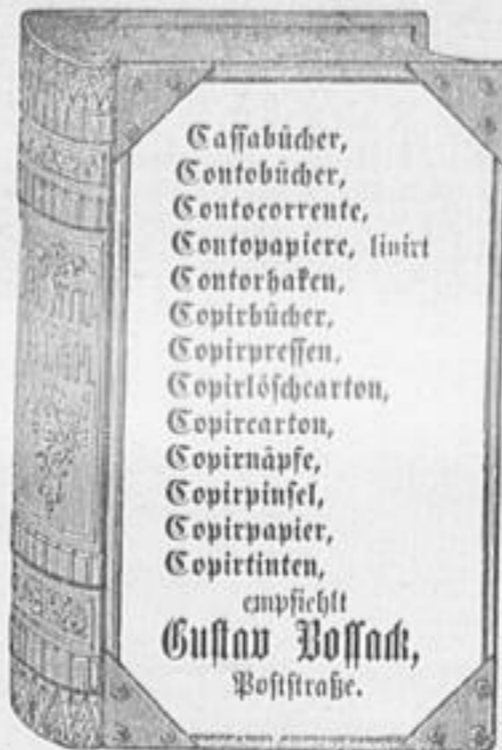 Caſſabücher,
Contobücher,
Contocorrente,
Contopapiere, linirt
Contorhaken,
Copirbücher,
Copirpreſſen,
Copirlöſchcarton,
Copircarton,
Copirnäpfe,
Copirpinſel,
Copirpapier,
Copirtinten,
empfiehlt
Guſtav Boſſack,
Poſtſtraße.